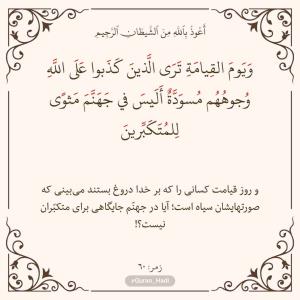 أَعُوذُ بِاللَّهِ مِنَ الشَّيْطَانِ الرَّجِيمِ
وَيَومَ القِيامَةِ تَرَى الَّذينَ كَذَبوا عَلَى اللَّهِ
وُجوهُهُم مُسوَدَّةٌ أَلَيسَ في جَهَنَّمَ مَثوًى
لِلمُتَكَبِّرينَ
و روز قیامت کسانی را که بر خدا دروغ بستند می‌بینی که
صورتهایشان سیاه است؛ آیا در جهنّم جایگاهی برای متکبّران
نیست؟!
زمر: ۶۰
@Quran_Hadi